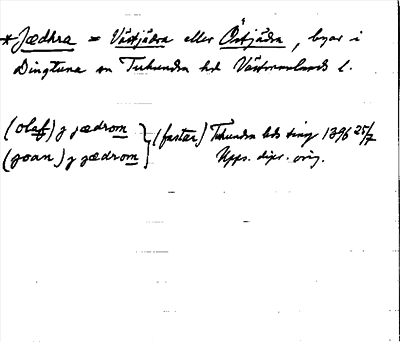 *Jædhra = Västjädra eller Östjädra, byar i
Dingtuna sn Tuhundra hd Västmanlands l.
(olaf) j jædrom } (fastar) Tuhundra hds ting 1396 25/7
(joan) j jædrom } Upps. dipl. orig.